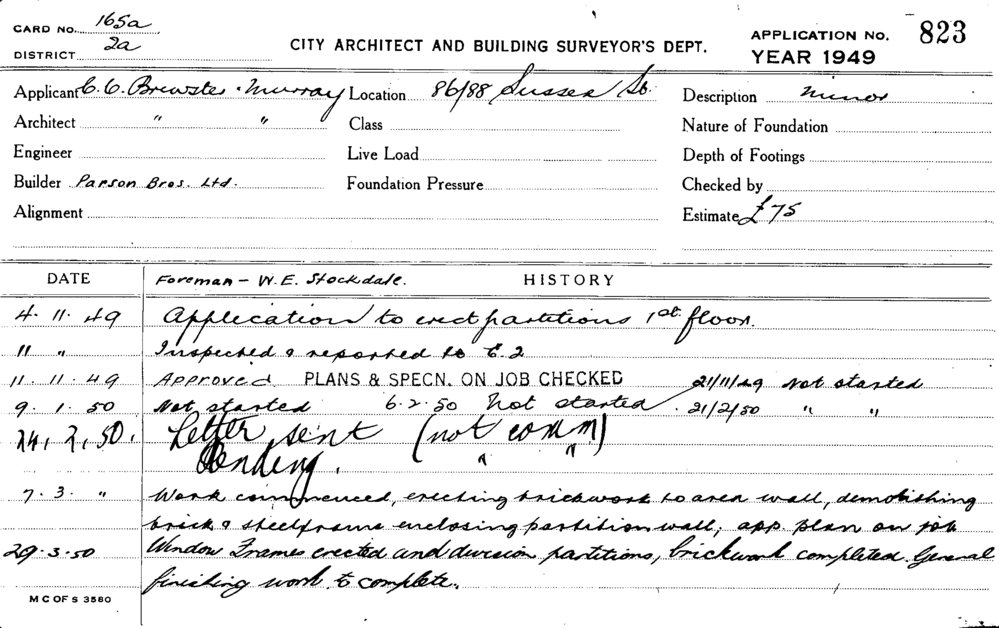 CARD NO. 165a
DISTRICT 2a
CITY ARCHITECT AND BUILDING SURVEYOR'S DEPT.
APPLICATION NO. 823
YEAR 1949
Applicant C. C. Brewster Murray Location 86/88 Sussex St. Description Minor
Architect " " Class Nature of Foundation
Engineer Live Load Depth of Footings
Builder Parson Bros. Ltd. Foundation Pressure Checked by
Alignment Estimate £75
DATE Foreman - W.E. Stockdale. HISTORY
4. 11. 49 Application to erect partitions 1st floor.
" " Inspected & reported to E.2
11. 11. 49 Approved PLANS & SPECN. ON JOB CHECKED 21/11/49 Not started
9. 1. 50 Not started 6.2.50 Not started . 21/2/50 " "
24. 2. 50. Letter sent (not comm)
Pending. " "
7. 3. " Work commenced, erecting brickwork to area wall, demolishing
brick & steelframe enclosing partition wall; app. plan on job
29.3.50 Window Frames erected and division partitions, brickwork completed. General
finishing work to complete.
M C OF S 3580